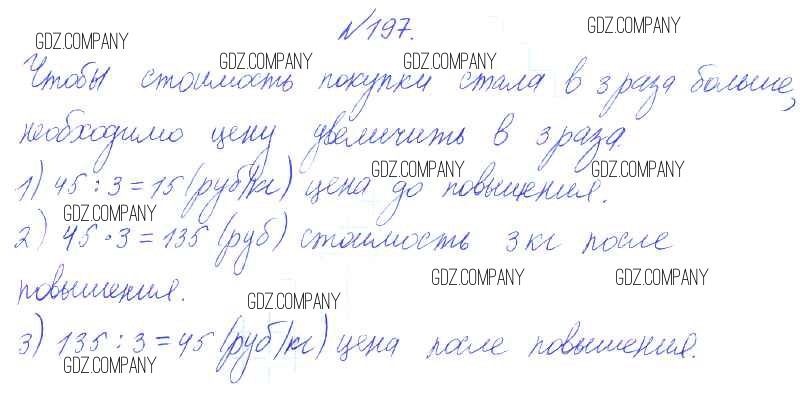 №197.
GDZ.COMPANY GDZ.COMPANY GDZ.COMPANY GDZ.COMPANY
Чтобы стоимость покупки стала в 3 раза больше,
необходимо цену увеличить в 3 раза.
GDZ.COMPANY GDZ.COMPANY
1) 45 : 3 = 15 (руб/кг) цена до повышения.
GDZ.COMPANY
2) 45 · 3 = 135 (руб) стоимость 3 кг после
GDZ.COMPANY GDZ.COMPANY
повышения.
GDZ.COMPANY
3) 135 : 3 = 45 (руб/кг) цена после повышения.
GDZ.COMPANY